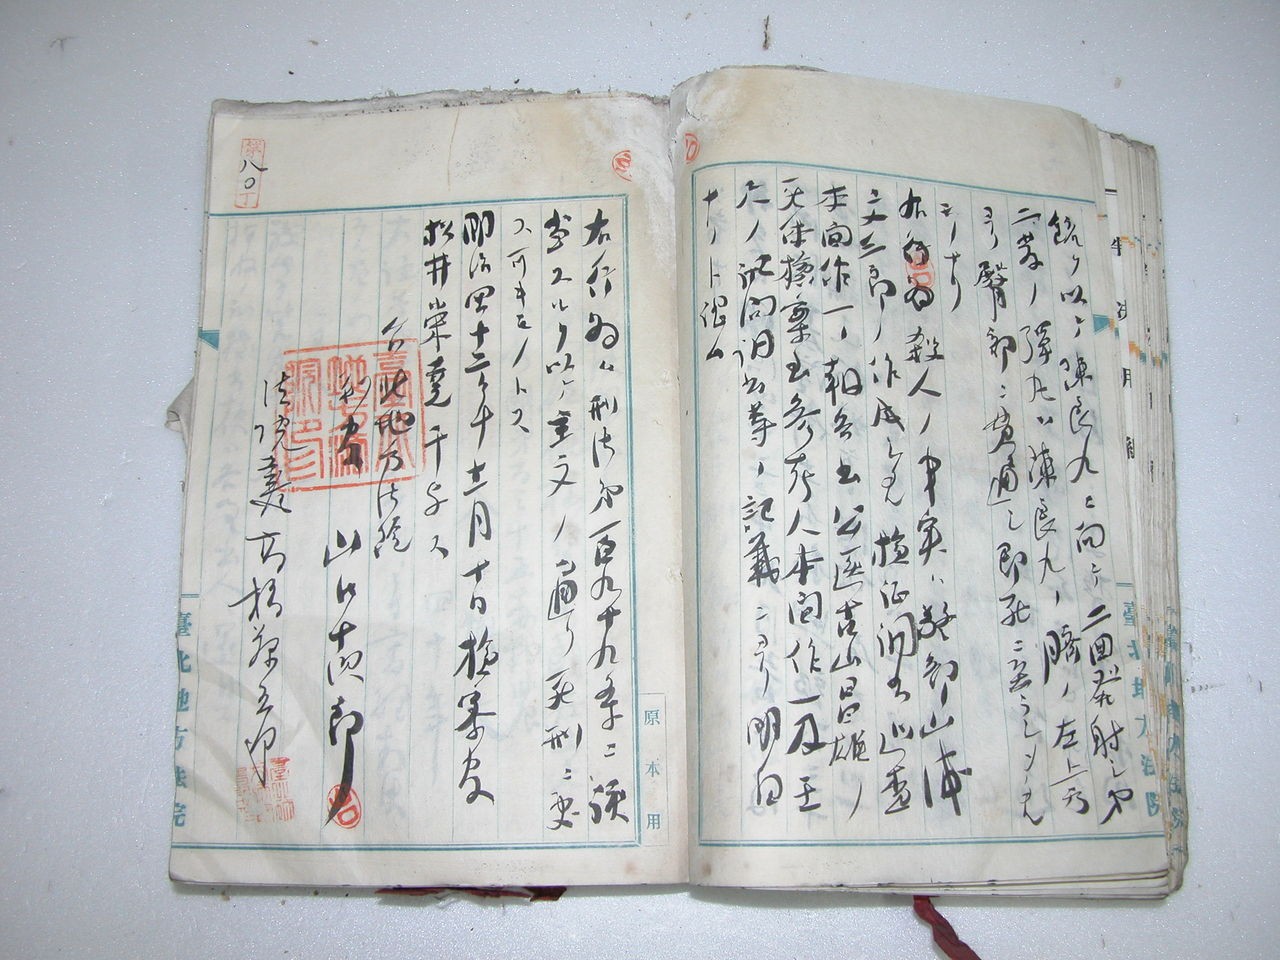 銃ヲ以テ陳良九ニ向テ二回発射シ第
二発ノ弾丸ハ陳良九ノ臍ノ左上方
ヨリ臀部ニ貫通シ即死ニ至ラシメタル
モノナリ
右行為殺人ノ事実ハ警部山浦
三郎ノ作成シタル検証調書巡査
本間作一ノ報告書公医吉山昌雄ノ
死体検案書参考人本間作一及王
六ノ訊問調書等ノ記載ニヨリ明白
ナリト認ム
右行為ハ刑法第百九十九条ニ該
当スルヲ以テ主文ノ通リ死刑ニ処
スヘキモノトス
明治四十二年十二月十日検察官
松井栄堯干与ス
台北地方法院
判官 山田十次郎
法院書記 高橋
第八〇丁
原本用
臺北地方法院
臺北地方法院
判決用